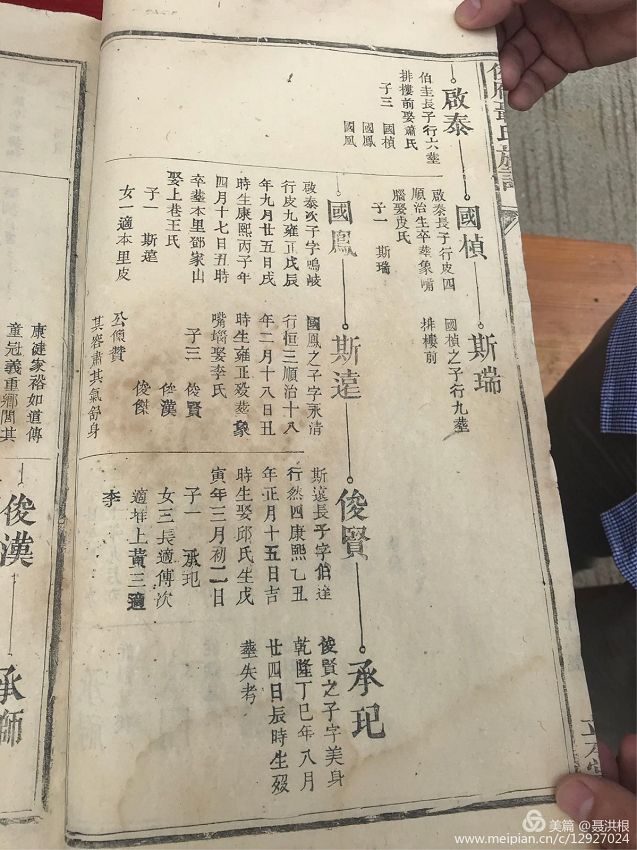 啟泰
伯圭長子行六塟
排樓前娶蕭氏
子三 國楨
國鳳
國鳳
國楨
啟泰長子行皮四
順治生卒塟象嘴
腦娶皮氏
子一 斯瑞
斯瑞
國楨之子行九塟
排樓前
國鳳
啟泰次子字鳴岐
行皮九雍正戊辰
年九月廿五日戌
時生康熙丙子年
四月十七日丑時
卒塟本里鄧家山
娶上巷王氏
子一 斯遠
女一適本里皮
斯遠
國鳳之子字永清
行恒三順治十八
年二月十八日丑
時生雍正殁塟象
嘴墈娶李氏
子三 俊賢
俊漢
俊傑
公傾贊
其容肅其氣舒身
康健家裕如道傳
童冠義重鄉閭其
俊賢
斯遠長子字伯
行然四康熙乙丑
年正月十五日吉
時生娶邱氏生戌
寅年三月初二日
子一 承玘
女三長適傅次
適堆上黃三適
李
承玘
俊賢之子字美身
乾隆丁巳年八月
廿四日辰時生殁
塟失考
俊漢
承師
美篇 @聂洪根
www.meipian.cn/c/12927024